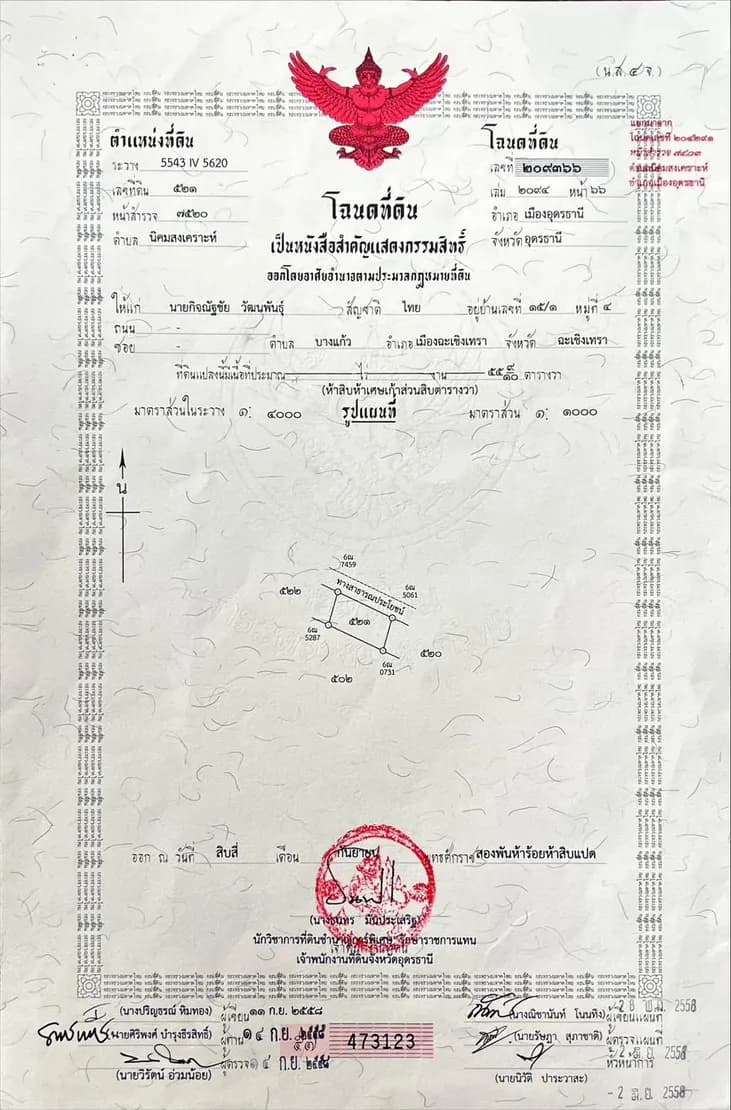 (น.ส.๔ จ.)
ตำแหน่งที่ดิน
ระวาง 5543 IV 5620
เลขที่ดิน ๕๒๑
หน้าสำรวจ ๗๕๒๐
ตำบล นิคมสงเคราะห์
โฉนดที่ดิน
เลขที่ ๒๐๙๓๖๖
เล่ม ๒๐๙๔ หน้า ๖๖
อำเภอ เมืองอุดรธานี
จังหวัด อุดรธานี
แยกมาจาก
โฉนดเลขที่
หน้าสำรวจ
ตำบลนิคมสงเคราะห์
อำเภอเมืองอุดรธานี
โฉนดที่ดิน
เป็นหนังสือสำคัญแสดงกรรมสิทธิ์
ออกโดยอาศัยอำนาจตามประมวลกฎหมายที่ดิน
ให้แก่ นายกิจณัฐชัย วัฒนพันธุ์ สัญชาติ ไทย อยู่บ้านเลขที่ ๑๕/๑ หมู่ที่ ๔
ถนน -
ซอย - ตำบล บางแก้ว อำเภอ เมืองฉะเชิงเทรา จังหวัด ฉะเชิงเทรา
ที่ดินแปลงนี้มีเนื้อที่ประมาณ - ไร่ - งาน ๕๕ ๙/๑๐ ตารางวา
(ห้าสิบห้าเศษเก้าส่วนสิบตารางวา)
มาตราส่วนในระวาง ๑: ๔๐๐๐ รูปแผนที่ มาตราส่วน ๑: ๑๐๐๐
น
6ณ
7459
6ณ
5061
ทางสาธารณประโยชน์
๕๒๒
๕๒๑
6ณ
5287
๕๒๐
6ณ
0731
๕๐๒
ออก ณ วันที่ สิบสี่ เดือน กันยายน พุทธศักราช สองพันห้าร้อยห้าสิบแปด
นักวิชาการที่ดินชำนาญการพิเศษ รักษาราชการแทน
เจ้าพนักงานที่ดิน
เจ้าพนักงานที่ดินจังหวัดอุดรธานี
(นางปริญธรณ์ ทิมทอง) ผู้เขียน ๑๑ ก.ย. ๒๕๕๘
(นายศิริพงศ์ บำรุงธีรสิทธิ์) ผู้ทาน ๑๔ ก.ย. ๒๕๕๘
ผู้ตรวจ ๑๔ ก.ย. ๒๕๕๘
(นายวิรัตน์ อ่วมน้อย)
473123
(นางณิชานันท์ โนนทิง) ผู้เขียนแผนที่ 2558
(นายรัษฎา สุภาชาติ) ผู้ตรวจแผนที่
หัวหน้าการ - 2 มิ.ย. 2558
(นายนิวัติ ปาระวาสะ)
- 2 มิ.ย. 2558